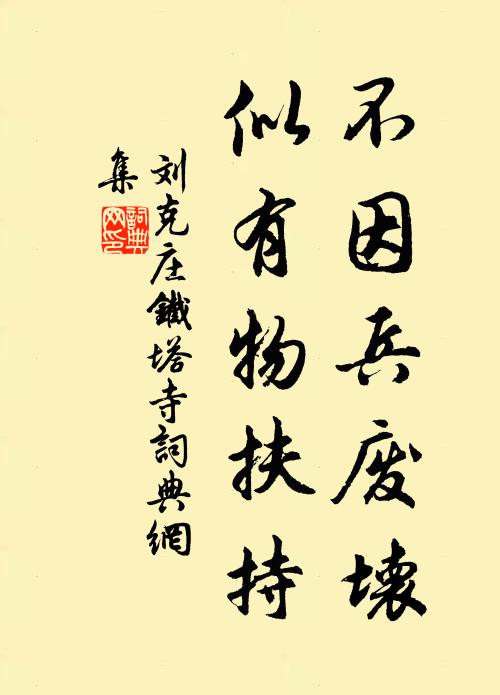 不因兵废壞
似有物扶持
刘克庄鐵塔寺詞典網
集
詞典网印